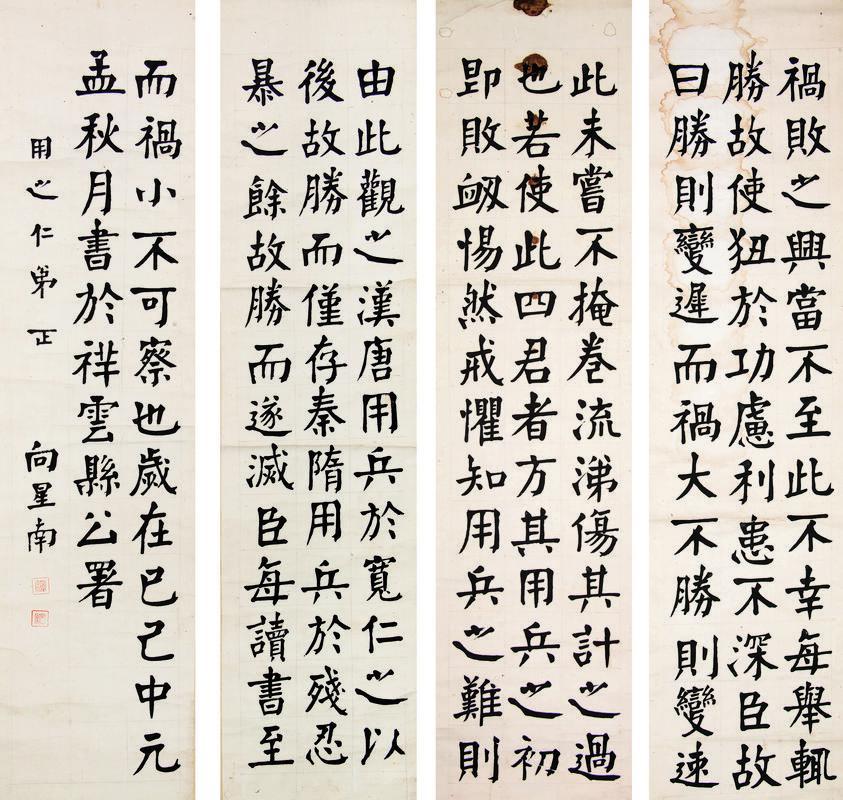 禍敗之興當不至此不幸每舉輒
勝故使狃於功慮利患不深臣故
曰勝則變遲而禍大不勝則變速
此未嘗不掩卷流涕傷其計之過
也若使此四君者方其用兵之初
即敗衂惕然戒懼知用兵之難則
由此觀之漢唐用兵於寬仁之以
後故勝而僅存秦隋用兵於殘忍
暴之餘故勝而遂滅臣每讀書至
而禍小不可察也歲在已己中元
孟秋月書於祥雲縣公署
用之仁弟正
向星南